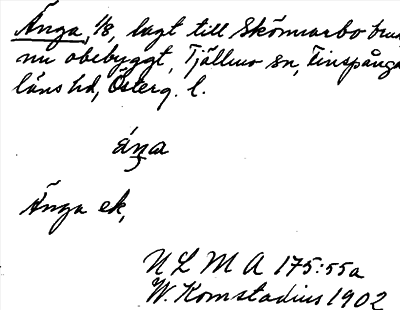 Änga, 1/8, lagt till Skönnarbo bruk
nu obebyggt, Tjällmo sn, Finspånga
läns hd, Österg. l.
áŋa
Änga ek,
N L M A 175:55a
W. Komstadius 1902